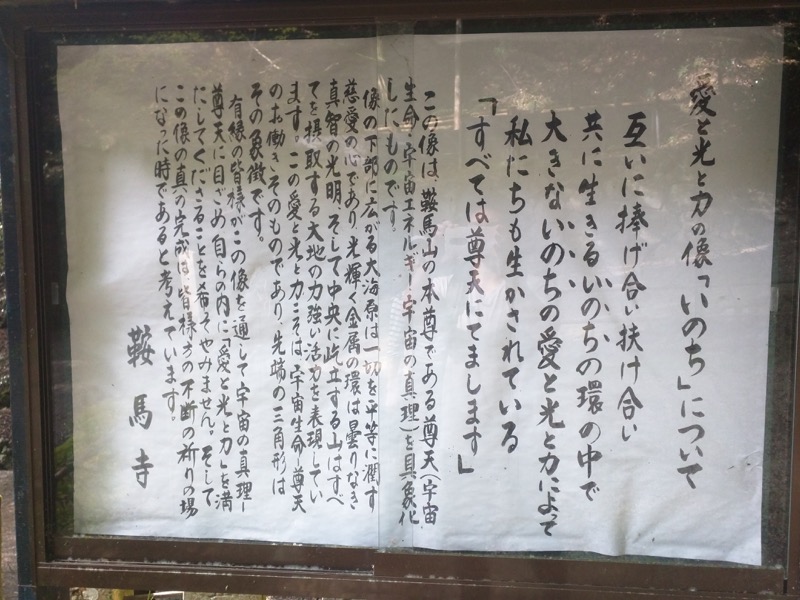 愛と光と力の像「いのち」について
互いに捧げ合い扶け合い
共に生きるいのちの環の中で
大きないのちの愛と光と力によって
私たちも生かされている
「すべては尊天にてまします」
この像は、鞍馬山の本尊である尊天(宇宙
生命・宇宙エネルギー・宇宙の真理)を具象化
したものです。
像の下部に広がる大海原は一切を平等に潤す
慈愛の心であり、光輝く金属の環は曇りなき
真智の光明、そして中央に屹立する山はすべ
てを摂取する大地の力強い活力を表現してい
ます。この愛と光と力こそは、宇宙生命・尊天
のお働きそのものであり、先端の三角形は
その象徴です。
有縁の皆様がこの像を通して宇宙の真理―
尊天に目ざめ自らの内に「愛と光と力」を満
たしてくださることを希ってやみません。そして
この像の真の完成は、皆様方の不断の祈りの場
になった時であると考えています。
鞍馬寺